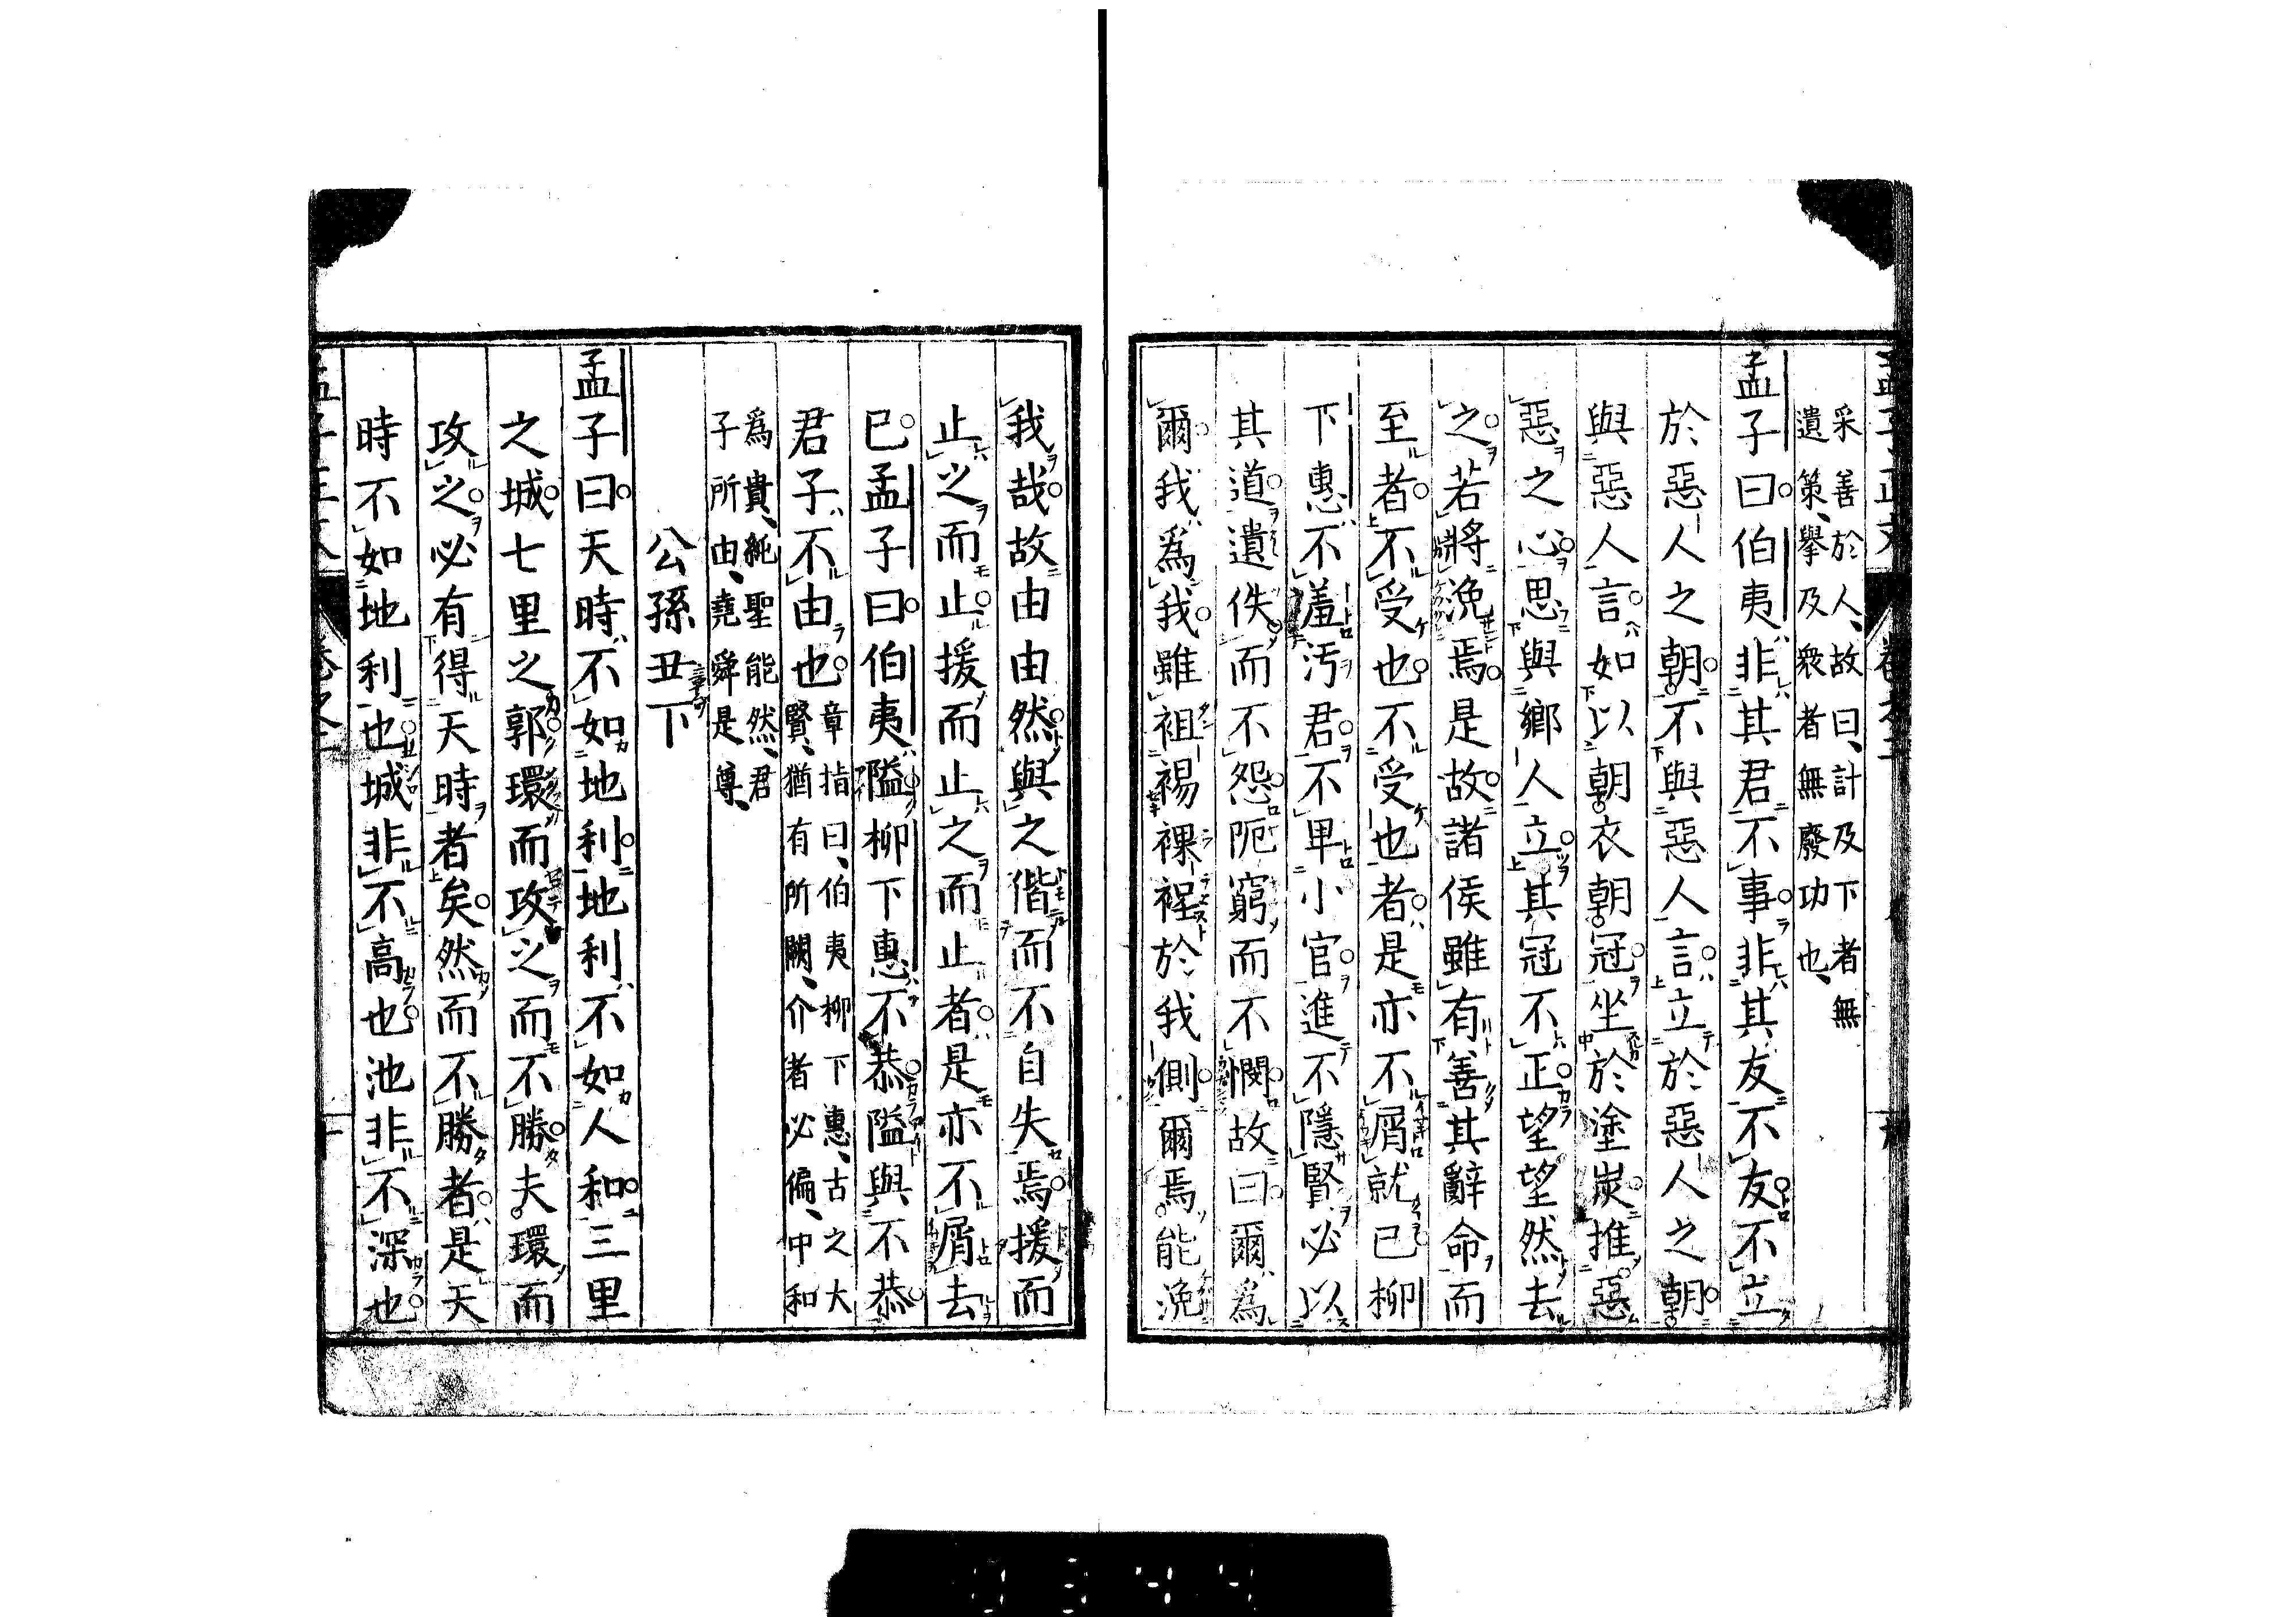 采善於人、故曰、計及下者無
遺策、擧及衆者無廢功也、
孟子曰伯夷非其君不事非其友不友不立
於惡人之朝不與惡人言立於惡人之朝
與惡人言如以朝衣朝冠坐於塗炭推惡
惡之心思與鄉人立其冠不正望望然去
之若將浼焉是故諸侯雖有善其辭命而
至者不受也不受也者是亦不屑就已柳
下惠不羞汚君不卑小官進不隱賢必以
其道遺佚而不怨阨窮而不憫故曰爾爲
爾我爲我雖袒裼裸裎於我側爾焉能浼
我哉故由由然與之偕而不自失焉援而
止之而止援而止之而止者是亦不屑去
已孟子曰伯夷隘柳下惠不恭隘與不恭
君子不由也
章指曰、伯夷柳下惠、古之大
賢、猶有所闕、介者必偏、中和
爲貴、純聖能然、君
子所由、堯舜是尊、
公孫丑下
孟子曰天時不如地利地利不如人和三里
之城七里之郭環而攻之而不勝夫環而
攻之必有得天時者矣然而不勝者是天
時不如地利也城非不高也池非不深也